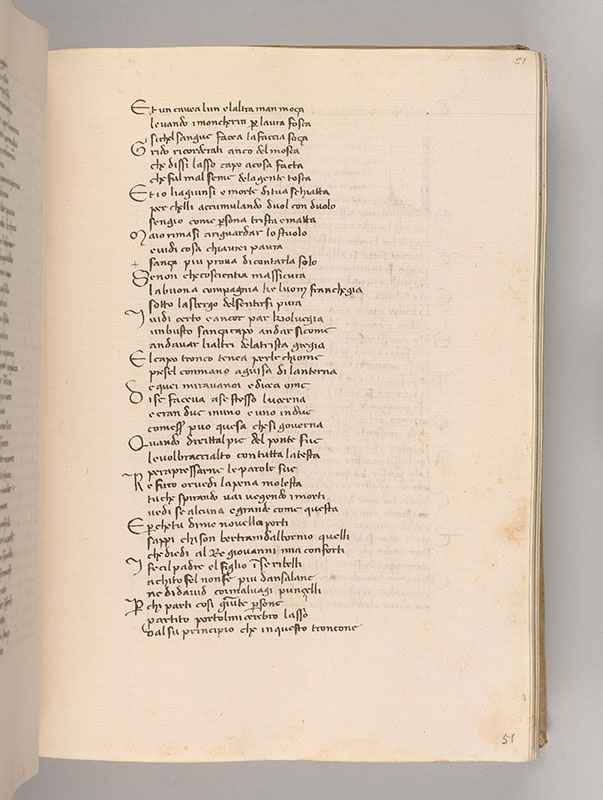 51
Et un cavea lun elaltra man moça
levando imoncherin per laura fosca
si chel sangue facea la faccia soça
Grido ricorderati anco del mosca
che dissi lasso capo a cosa facta
che ful mal seme dela gente tosca
Et io li agiunsi e morte di tua schiatta
per chelli accumulando duol con duolo
sengio come persona trista e matta
Ma io rimasi a riguardar lo stuolo
e vidi cosa chi avrei paura
sança piu prova di contarla solo
Se non che coscientia massicura
la buona compagnia ke luom francheggia
sotto lasbergo del sentirsi pura
I vidi certo e ancor par kio lveggia
un busto sança capo andar si come
andavan li altri dela trista greggia
El capo tronco tenea per le chiome
pesol con mano a guisa di lanterna
e quei mirava noi e dicea ome
Di se faceva a se stesso lucerna
e eran due in uno e uno in due
come esser puo quei sa che si governa
Quando diritto al pie del ponte fue
levo l braccio alto con tutta la testa
per apressarne le parole sue
Ke furo or vedi la pena molesta
tu che spirando vai vegendo i morti
vedi se alcuna e grande come questa
E perche tu di me novella porti
sappi chi son bertram dal bornio quelli
che diedi al Re giovanni ima conforti
I feci l padre el figlio in se ribelli
achitofel non fe piu dansalone
ne di david coi malvagi pungelli
Per chi parti cosi giunte persone
partito porto l mi cerebro lasso
dal su principio che in questo troncone
51